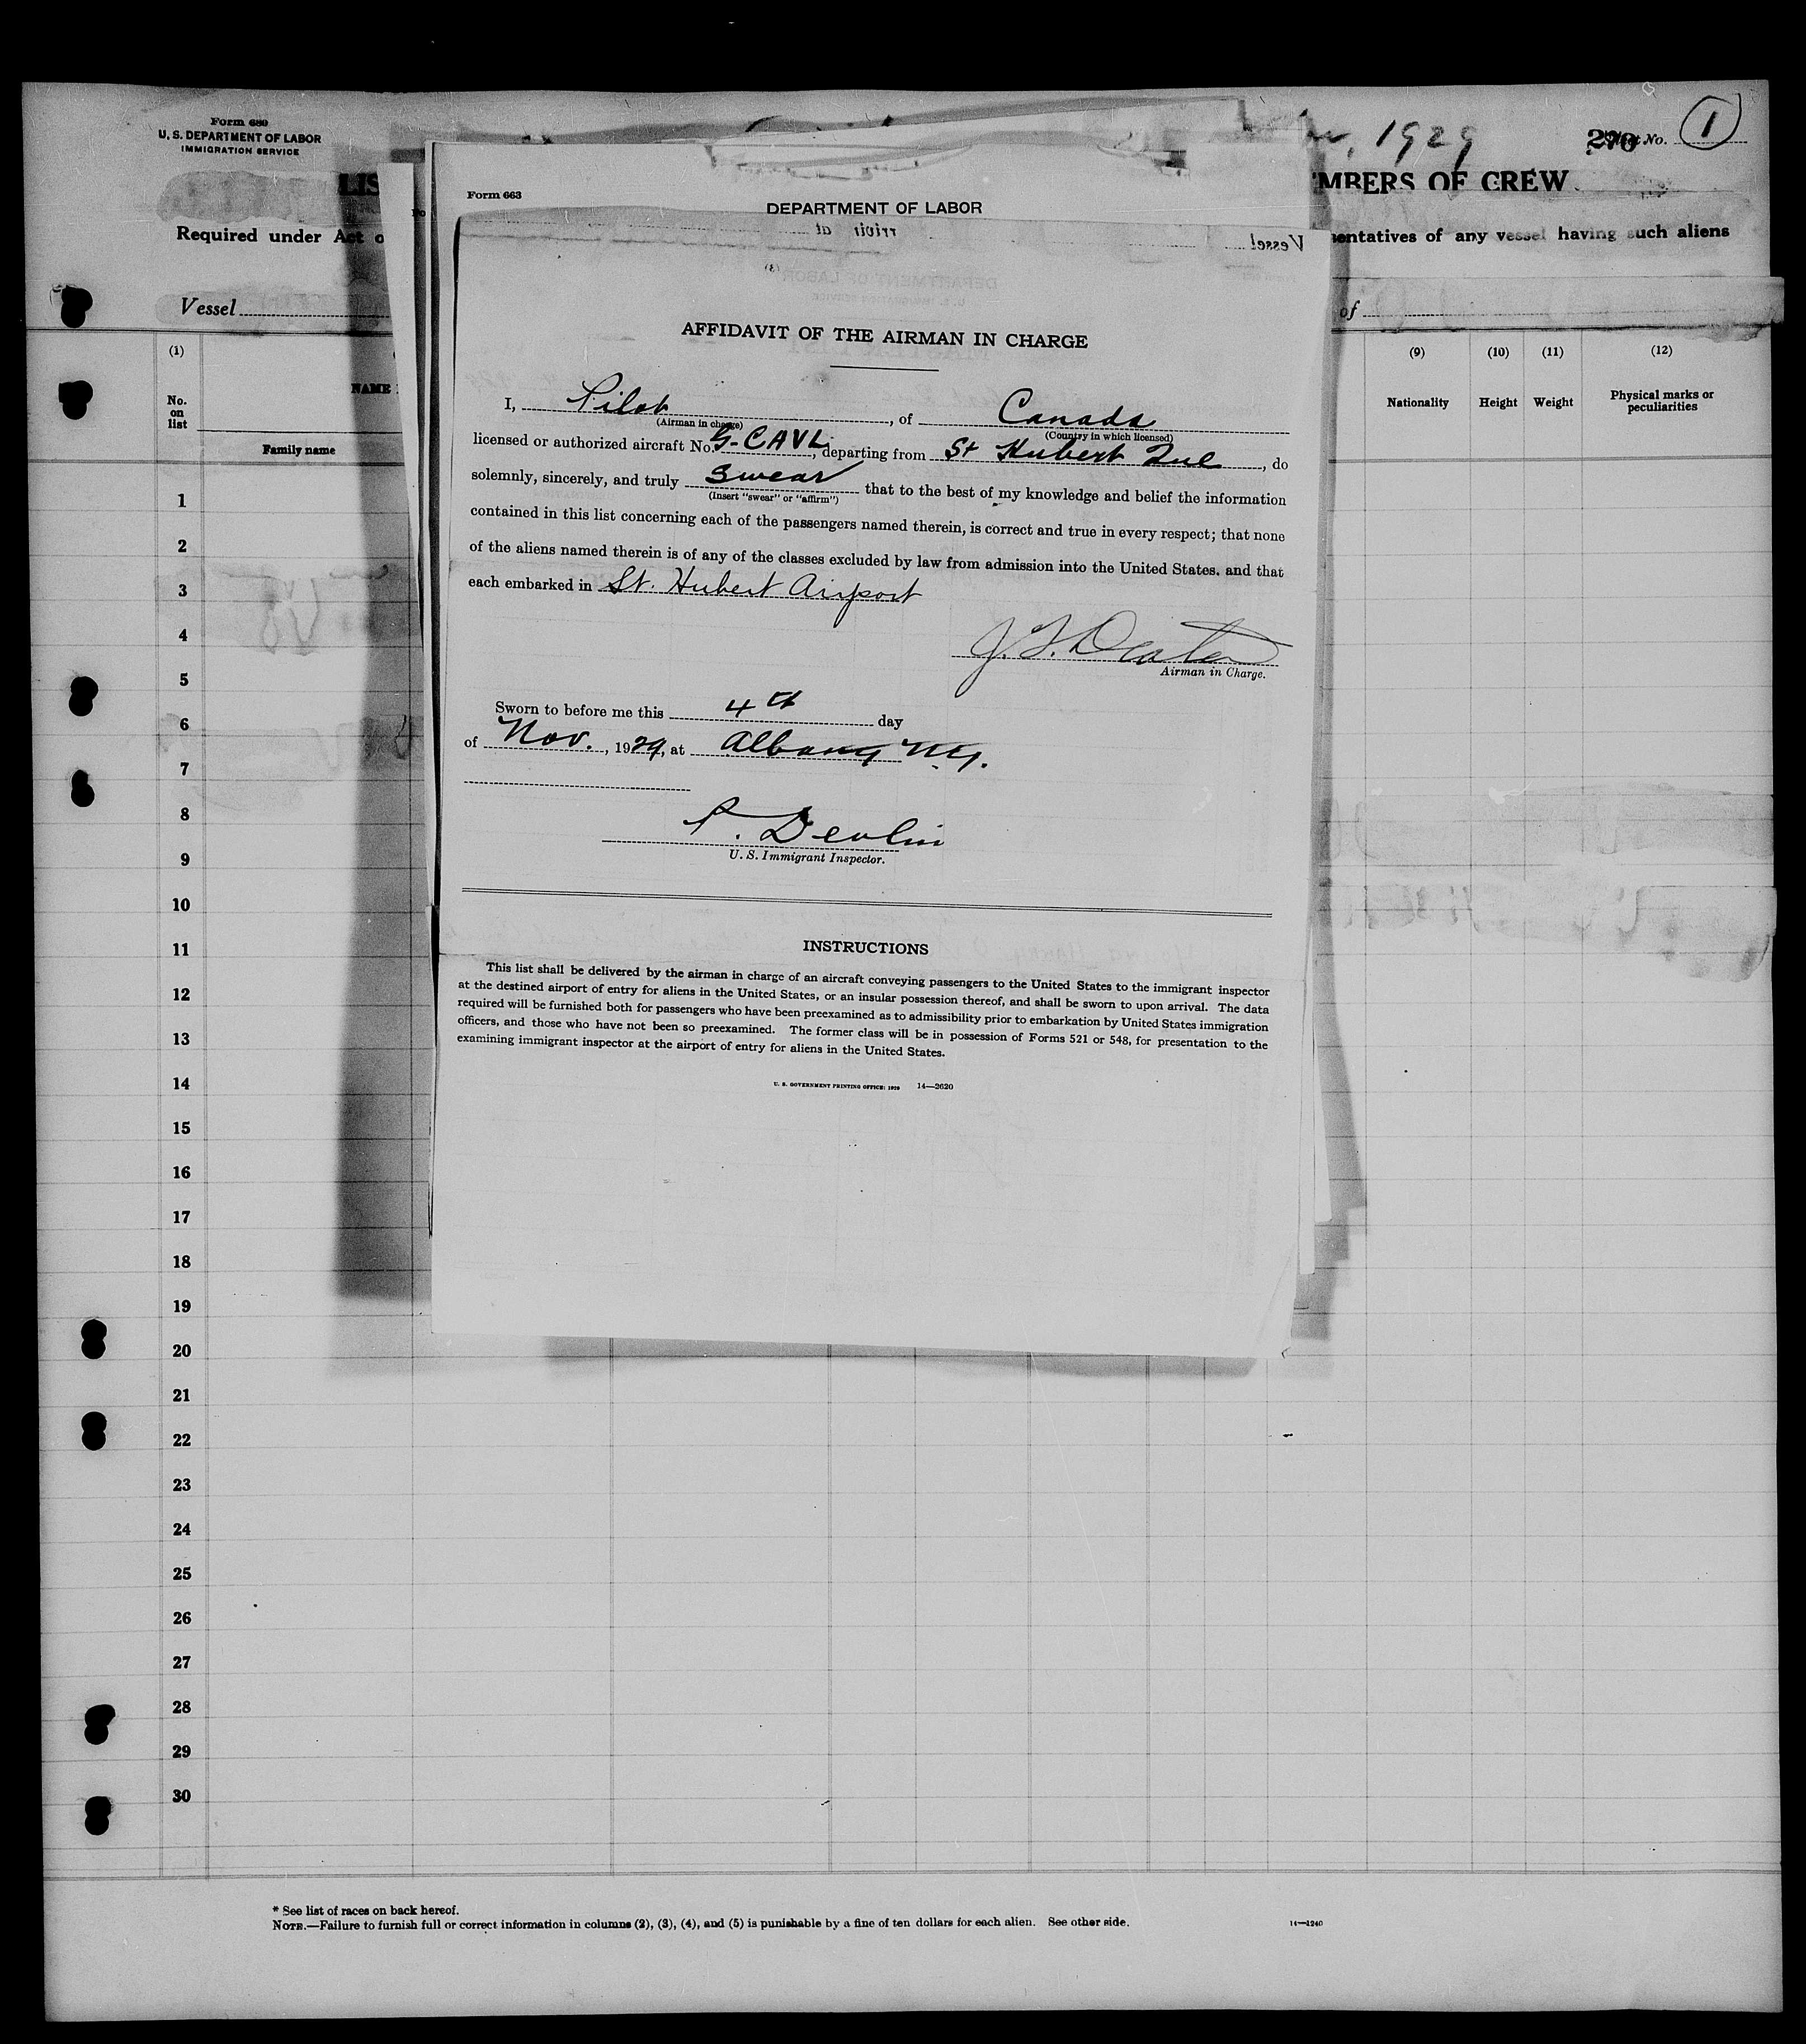 Form 689
U. S. DEPARTMENT OF LABOR
IMMIGRATION SERVICE
LIS
Required under Act o
Vessel
, 1929
270
Sheet No. 1
MBERS OF CREW
sentatives of any vessel having such aliens
of
(1)
No.
on
list
NAME
Family name
(9)
Nationality
(10)
Height
(11)
Weight
(12)
Physical marks or
peculiarities
Form 663
DEPARTMENT OF LABOR
Vessel
AFFIDAVIT OF THE AIRMAN IN CHARGE
I, Pilot, of Canada
(Airman in charge) (Country in which licensed)
licensed or authorized aircraft No. G-CAVL, departing from St Hubert Que, do
solemnly, sincerely, and truly swear that to the best of my knowledge and belief the information
(Insert "swear" or "affirm")
contained in this list concerning each of the passengers named therein, is correct and true in every respect; that none
of the aliens named therein is of any of the classes excluded by law from admission into the United States. and that
each embarked in St. Hubert Airport
Airman in Charge.
Sworn to before me this 4th day
of Nov., 1929, at Albany N.Y.
P. Devlin
U. S. Immigrant Inspector.
INSTRUCTIONS
This list shall be delivered by the airman in charge of an aircraft conveying passengers to the United States to the immigrant inspector
at the destined airport of entry for aliens in the United States, or an insular possession thereof, and shall be sworn to upon arrival. The data
required will be furnished both for passengers who have been preexamined as to admissibility prior to embarkation by United States immigration
officers, and those who have not been so preexamined. The former class will be in possession of Forms 521 or 548, for presentation to the
examining immigrant inspector at the airport of entry for aliens in the United States.
U. S. GOVERNMENT PRINTING OFFICE: 1929 14—2620
1
2
3
4
5
6
7
8
9
10
11
12
13
14
15
16
17
18
19
20
21
22
23
24
25
26
27
28
29
30
* See list of races on back hereof.
NOTE.—Failure to furnish full or correct information in columns (2), (3), (4), and (5) is punishable by a fine of ten dollars for each alien. See other side.
14—1240